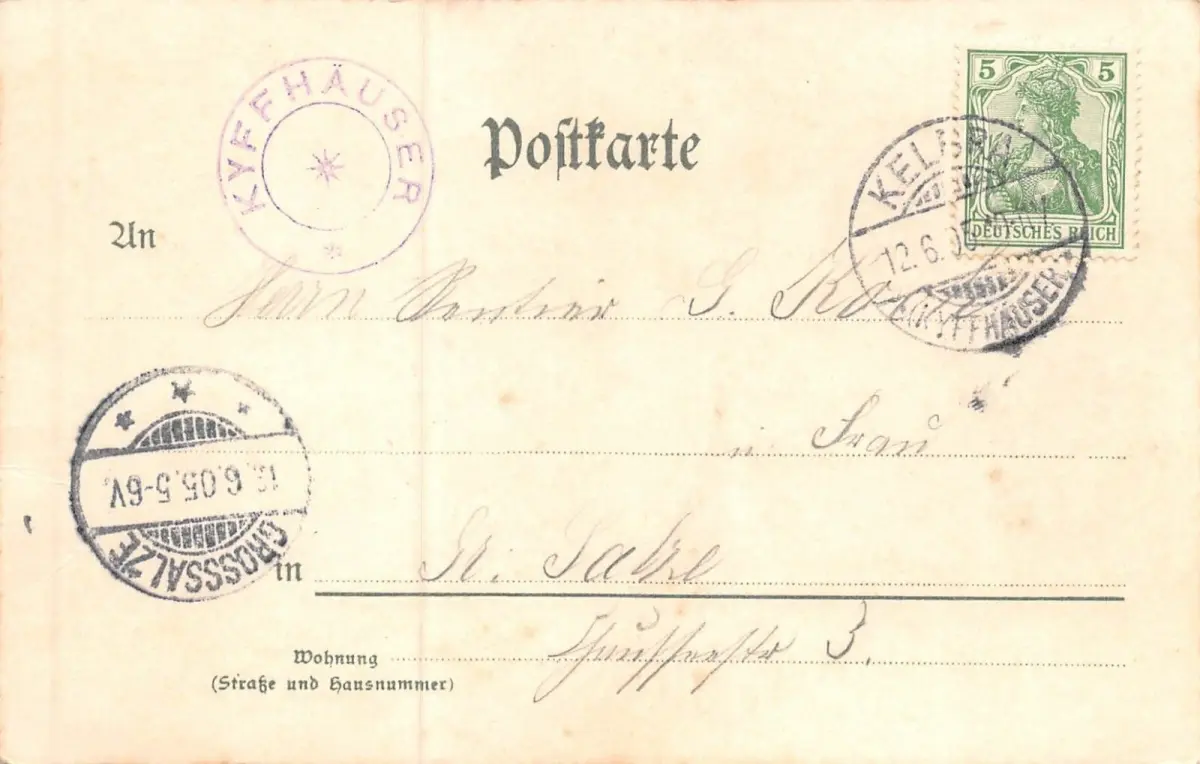 KYFFHÄUSER
Postkarte
5 5
DEUTSCHES REICH
KELBRA
12.6.05
(KYFFHÄUSER)
An
Herrn Rentier G. Koch
u Frau
.6.05.5-6V.
GROSSSALZE
in
Gr. Salze
Wohnung
(Straße und Hausnummer)
Chausseestr 3.